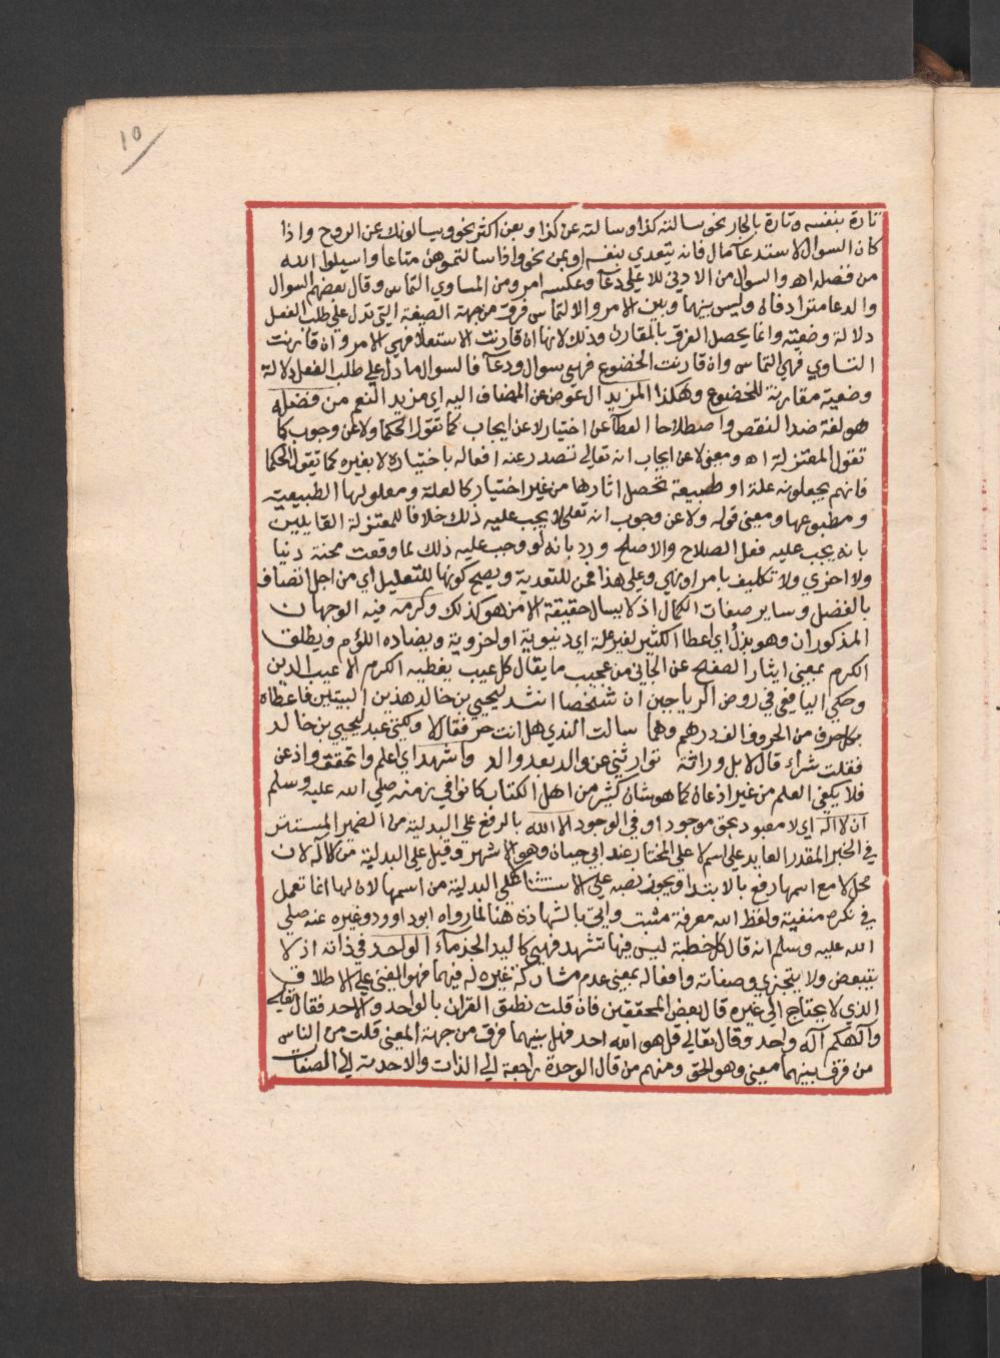 ١٥
تارة بنفسه وتارة بالجار نحو سالته كذا وسالته عن كذا وبعن اكثر نحو ويسالونك عن الروح واذا
كان السوال لاستدعا مال فانه يتعدي بنفسه او بمن نحو واذا سالتموهن متاعا واسيلوا الله
من فضله اه والسوال من الادني للاعلي دعآ وعكسه امر ومن المساوي التماس وقال بعضهم السوال
والدعا مترادفان وليس بينهما وبين الامر والالتماس فرق من جهة الصيغة التي تدل علي طلب الفعل
دلالة وضعية وانما يحصل الفرق بالمقارن وذلك لانها ان قارنت الاستعلا فهي الامر وان قارنت
التساوي فهي التماس وان قارنت الخضوع فهي سوال ودعآ فالسوال ما دل علي طلب الفعل دلالة
وضعية مقارنة للخضوع وهكذا المزيد ال عوض عن المضاف اليه اي مزيد النعم من فضله
هو لغة ضد النقص واصطلاحا العطآ عن اختيار لا عن ايجاب كما تقول الحكما ولا عن وجوب كما
تقول المعتزلة اه ومعني لا عن ايجاب انه تعالي تصدر عنه افعاله باختياره لا بغيره كما تقول الحكما
فانهم يجعلونه علة او طبيعة تحصل اثارها من غير اختيار كالعلة ومعلولها الطبيعة
ومطبوعها ومعني قوله ولا عن وجوب انه تعالي لا يجب عليه ذلك خلافا للمعتزلة القايلين
بانه يجب عليه فعل الصلاح والاصلح ورد بانه لو وجب عليه ذلك لما وقعت محنة دنيا
ولا اخري ولا تكليف بامر او نهي وعلي هذا فمن للتعدية ويصح كونها للتعليل اي من اجل اتصافه
بالفضل وساير صفات الكمال اذ لا يسال حقيقة الا من هو كذلك وكرمه فيه الوجهان
المذكوران وهو بذل اي اعطا الكثير لغير علة اي دنيوية او اخروية ويضاده اللؤم ويطلق
الكرم بمعني ايثار الصفح عن الجاني من عجيب ما يقال كل عيب يغطيه الكرم الا عيب الدين
وحكي اليافعي في روض الرياحين ان شخصا انشد ليحيي بن خالد هذين البيتين فاعطاه
بكل حرف من الحروف الف درهم وهما سالت الندي هل انت حر فقال لا ولكني عبد ليحيي بن خالد
فقلت شرآء قال لا بل وراثة توارثني عن والد بعد والد واشهد اي اعلم واتحقق واذعن
فلا يكفي العلم من غير اذعان كما هو شان كثير من اهل الكتاب كانوا في زمنه صلي الله عليه وسلم
ان لا اله اي لا معبود بحق موجود او في الوجود الا الله بالرفع علي البدلية من الضمير المستتر
في الخبر المقدر العايد علي اسم لا علي المختار عند ابي حيان وهو الاشهر وقيل علي البدلية من لا اله لان
محل لا مع اسمها رفع بالابتدا ويجوز نصبه علي الاستثنا لا علي البدلية من اسمها لان لها انما تعمل
في نكرة منفية ولفظ الله معرفة مثبت واتي بالشهادة هنا لما رواه ابو داوود وغيره عنه صلي
الله عليه وسلم انه قال كل خطبة ليس فيها تشهد فهي كاليد الجذمآء الواحد في ذاته اذ لا
يتبعض ولا يتجزي وصفاته وافعاله بمعني عدم مشاركة غيره له فيهما فهو الغني علي الاطلاق
الذي لا يحتاج الي غيره قال بعض المحققين فان قلت نطق القران بالواحد والاحد فقال تعالي
والهكم اله واحد وقال تعالي قل هو الله احد فهل بينهما فرق من جهة المعني قلت من الناس
من فرق بينهما معني وهو الحق ومنهم من قال الوحدة راجعة الي الذات والاحدية الي الصفات